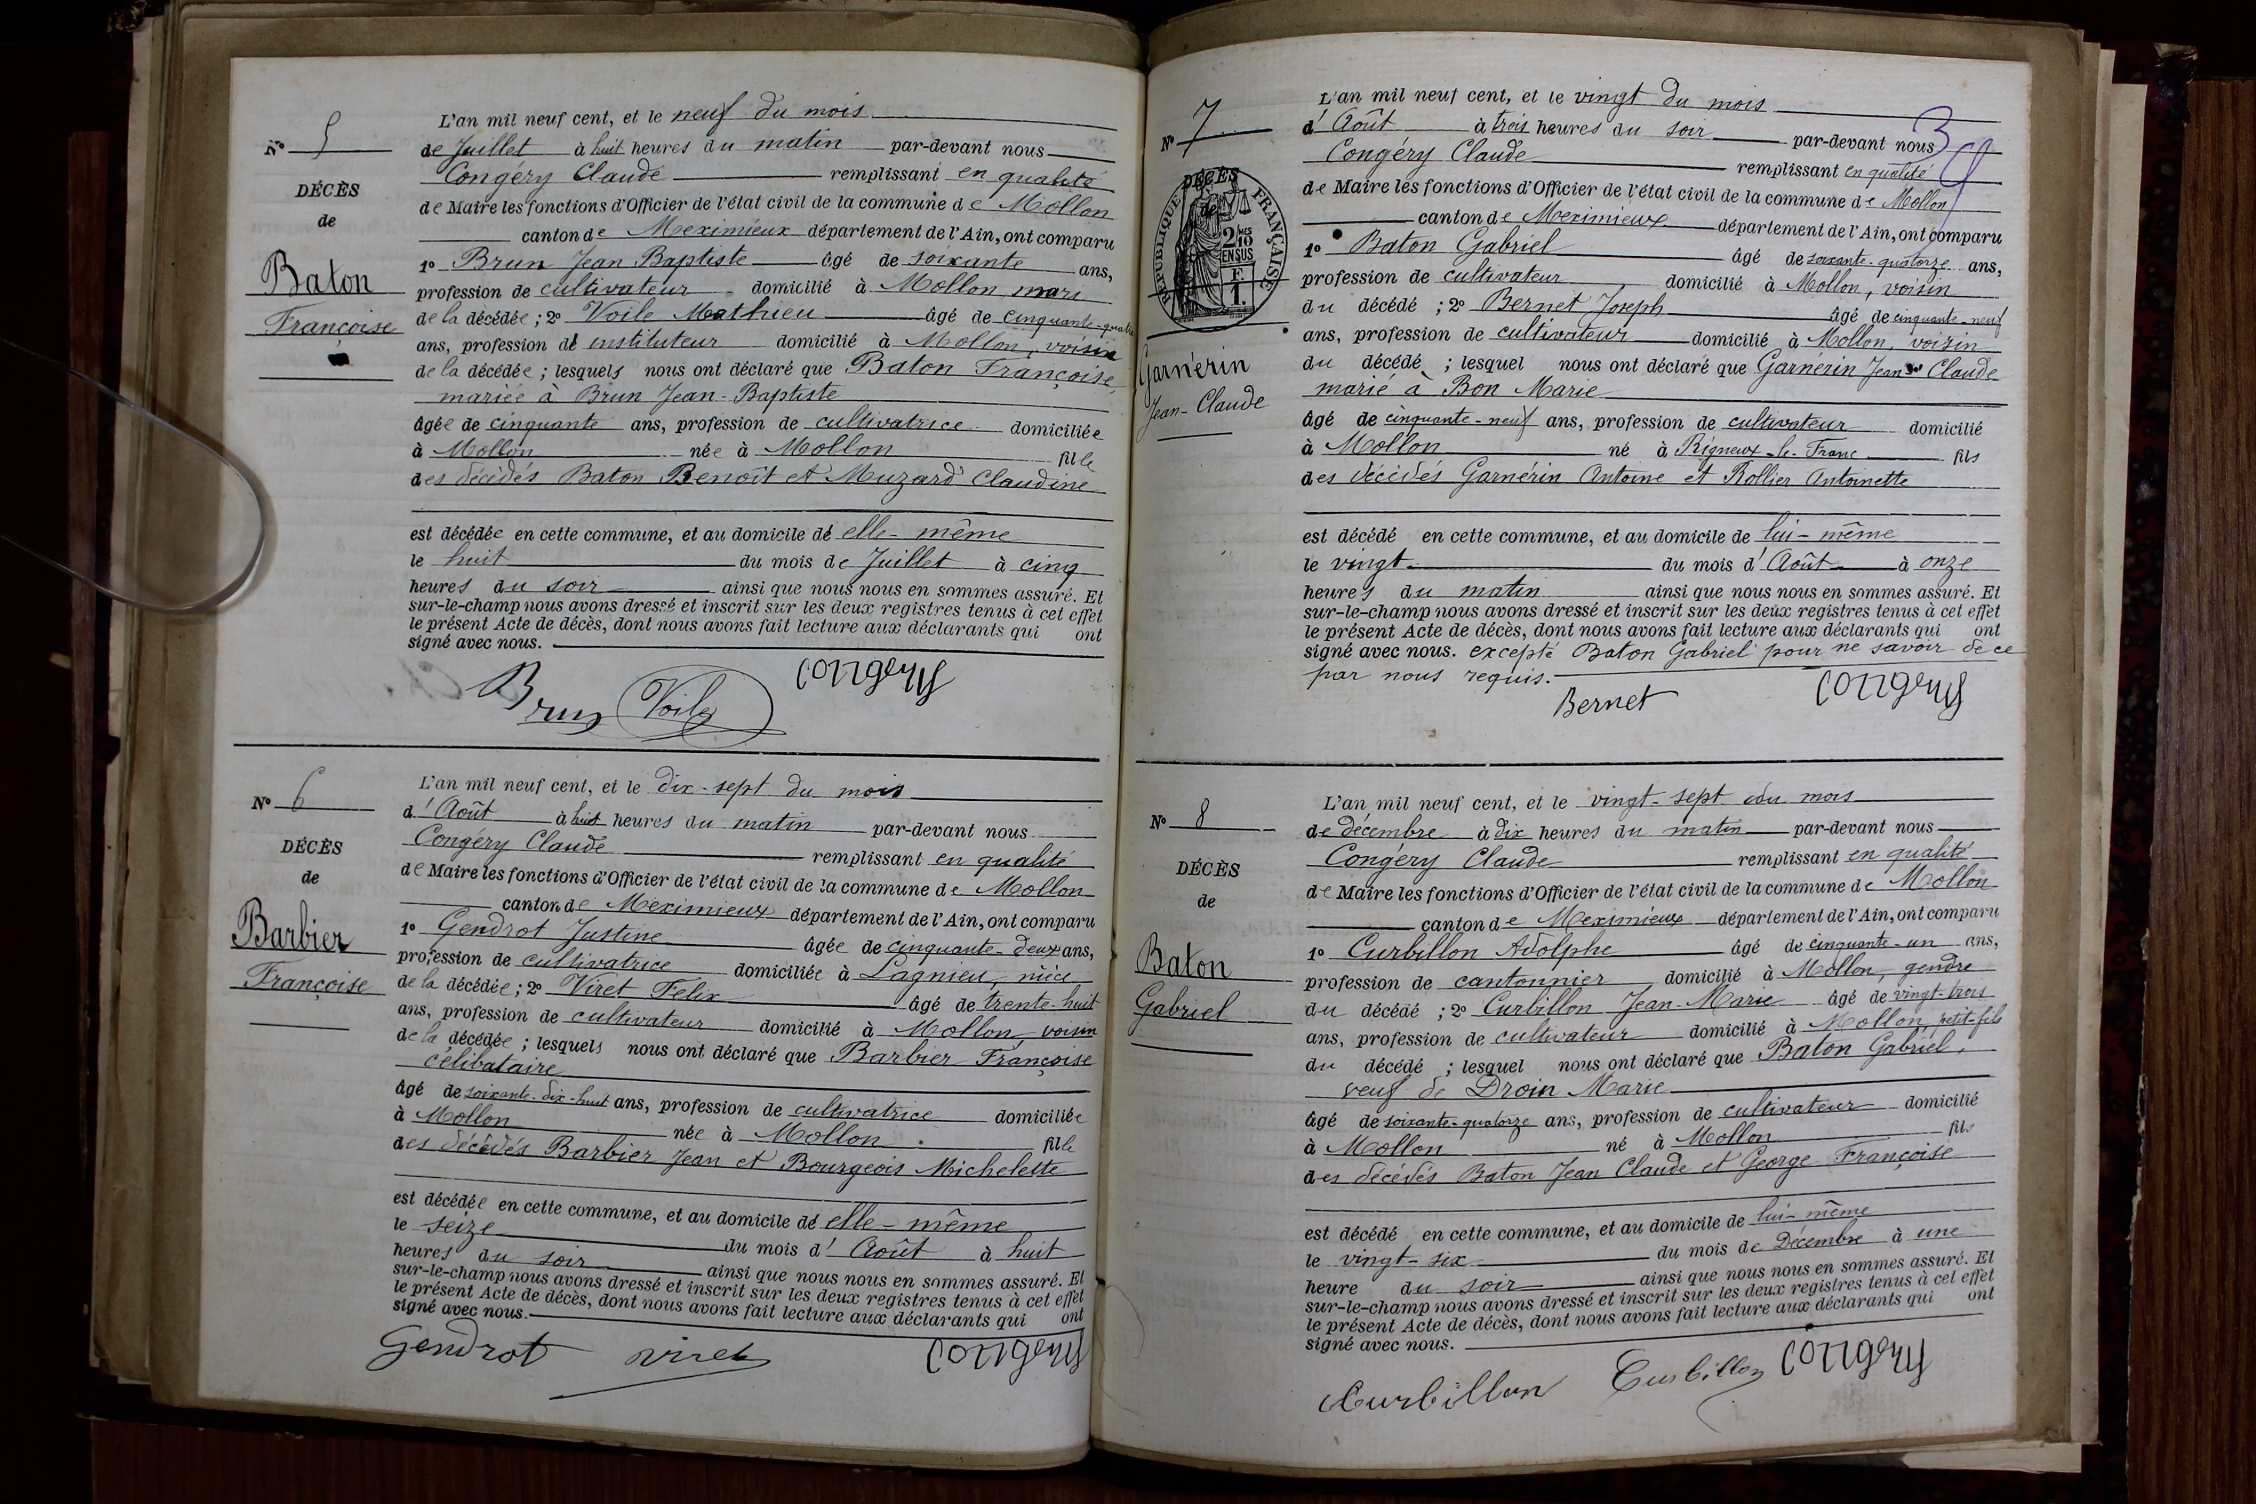 N° 5
DÉCÈS
de
Baton
Françoise
L'an mil neuf cent, et le neuf du mois
de Juillet à huit heures du matin par-devant nous
Congéry Claude remplissant en qualité
de Maire les fonctions d'Officier de l'état civil de la commune de Mollon
canton de Meximieux département de l'Ain, ont comparu
1° Brun Jean Baptiste âgé de soixante ans,
profession de cultivateur domicilié à Mollon, mari
de la décédée ; 2° Voile Mathieu âgé de cinquante-quatre
ans, profession de instituteur domicilié à Mollon, voisin
de la décédée ; lesquels nous ont déclaré que Baton Françoise
mariée à Brun Jean-Baptiste
âgée de cinquante ans, profession de cultivatrice domiciliée
à Mollon née à Mollon fille
des décédés Baton Benoît et Muzard Claudine
est décédée en cette commune, et au domicile de elle-même
le huit du mois de Juillet à cinq
heures du soir ainsi que nous nous en sommes assuré. Et
sur-le-champ nous avons dressé et inscrit sur les deux registres tenus à cet effet
le présent Acte de décès, dont nous avons fait lecture aux déclarants qui ont
signé avec nous.
Brun Voile Congery
N° 6
DÉCÈS
de
Barbier
Françoise
L'an mil neuf cent, et le dix-sept du mois
d'Août à huit heures du matin par-devant nous
Congéry Claude remplissant en qualité
de Maire les fonctions d'Officier de l'état civil de la commune de Mollon
canton de Meximieux département de l'Ain, ont comparu
1° Gendrot Justine âgée de cinquante-deux ans,
profession de cultivatrice domiciliée à Lagnieu, nièce
de la décédée ; 2° Viret Felix âgé de trente-huit
ans, profession de cultivateur domicilié à Mollon, voisin
de la décédée ; lesquels nous ont déclaré que Barbier Françoise
célibataire
âgé de soixante-dix-huit ans, profession de cultivatrice domiciliée
à Mollon née à Mollon fille
des décédés Barbier Jean et Bourgeois Michelette
est décédée en cette commune, et au domicile de elle-même
le seize du mois d'Août à huit
heures du soir ainsi que nous nous en sommes assuré. Et
sur-le-champ nous avons dressé et inscrit sur les deux registres tenus à cet effet
le présent Acte de décès, dont nous avons fait lecture aux déclarants qui ont
signé avec nous.
Gendrot Viret Congery
N° 7
DÉCÈS
de
RÉPUBLIQUE FRANÇAISE
2/10 MES
EN SUS
F
1.
Garnérin
Jean-Claude
3
L'an mil neuf cent, et le vingt du mois
d'Août à trois heures du soir par-devant nous
Congéry Claude remplissant en qualité
de Maire les fonctions d'Officier de l'état civil de la commune de Mollon
canton de Meximieux département de l'Ain, ont comparu
1° Baton Gabriel âgé de soixante-quatorze ans,
profession de cultivateur domicilié à Mollon, voisin
du décédé ; 2° Bernet Joseph âgé de cinquante-neuf
ans, profession de cultivateur domicilié à Mollon, voisin
du décédé ; lesquel nous ont déclaré que Garnérin Jean Claude
marié à Bon Marie
âgé de cinquante-neuf ans, profession de cultivateur domicilié
à Mollon né à Rigneux-le-Franc fils
des décédés Garnérin Antoine et Rollier Antoinette
est décédé en cette commune, et au domicile de lui-même
le vingt du mois d'Août à onze
heures du matin ainsi que nous nous en sommes assuré. Et
sur-le-champ nous avons dressé et inscrit sur les deux registres tenus à cet effet
le présent Acte de décès, dont nous avons fait lecture aux déclarants qui ont
signé avec nous. excepté Baton Gabriel pour ne savoir de ce
par nous requis.
Bernet Congery
N° 8
DÉCÈS
de
Baton
Gabriel
L'an mil neuf cent, et le vingt-sept du mois
de décembre à dix heures du matin par-devant nous
Congéry Claude remplissant en qualité
de Maire les fonctions d'Officier de l'état civil de la commune de Mollon
canton de Meximieux département de l'Ain, ont comparu
1° Curbillon Adolphe âgé de cinquante-un ans,
profession de cantonnier domicilié à Mollon, gendre
du décédé ; 2° Curbillon Jean-Marie âgé de vingt-trois
ans, profession de cultivateur domicilié à Mollon, petit-fils
du décédé ; lesquel nous ont déclaré que Baton Gabriel,
veuf de Droin Marie
âgé de soixante-quatorze ans, profession de cultivateur domicilié
à Mollon né à Mollon fils
des décédés Baton Jean Claude et George Françoise
est décédé en cette commune, et au domicile de lui-même
le vingt-six du mois de Décembre à une
heure du soir ainsi que nous nous en sommes assuré. Et
sur-le-champ nous avons dressé et inscrit sur les deux registres tenus à cet effet
le présent Acte de décès, dont nous avons fait lecture aux déclarants qui ont
signé avec nous.
Curbillon Curbillon Congery